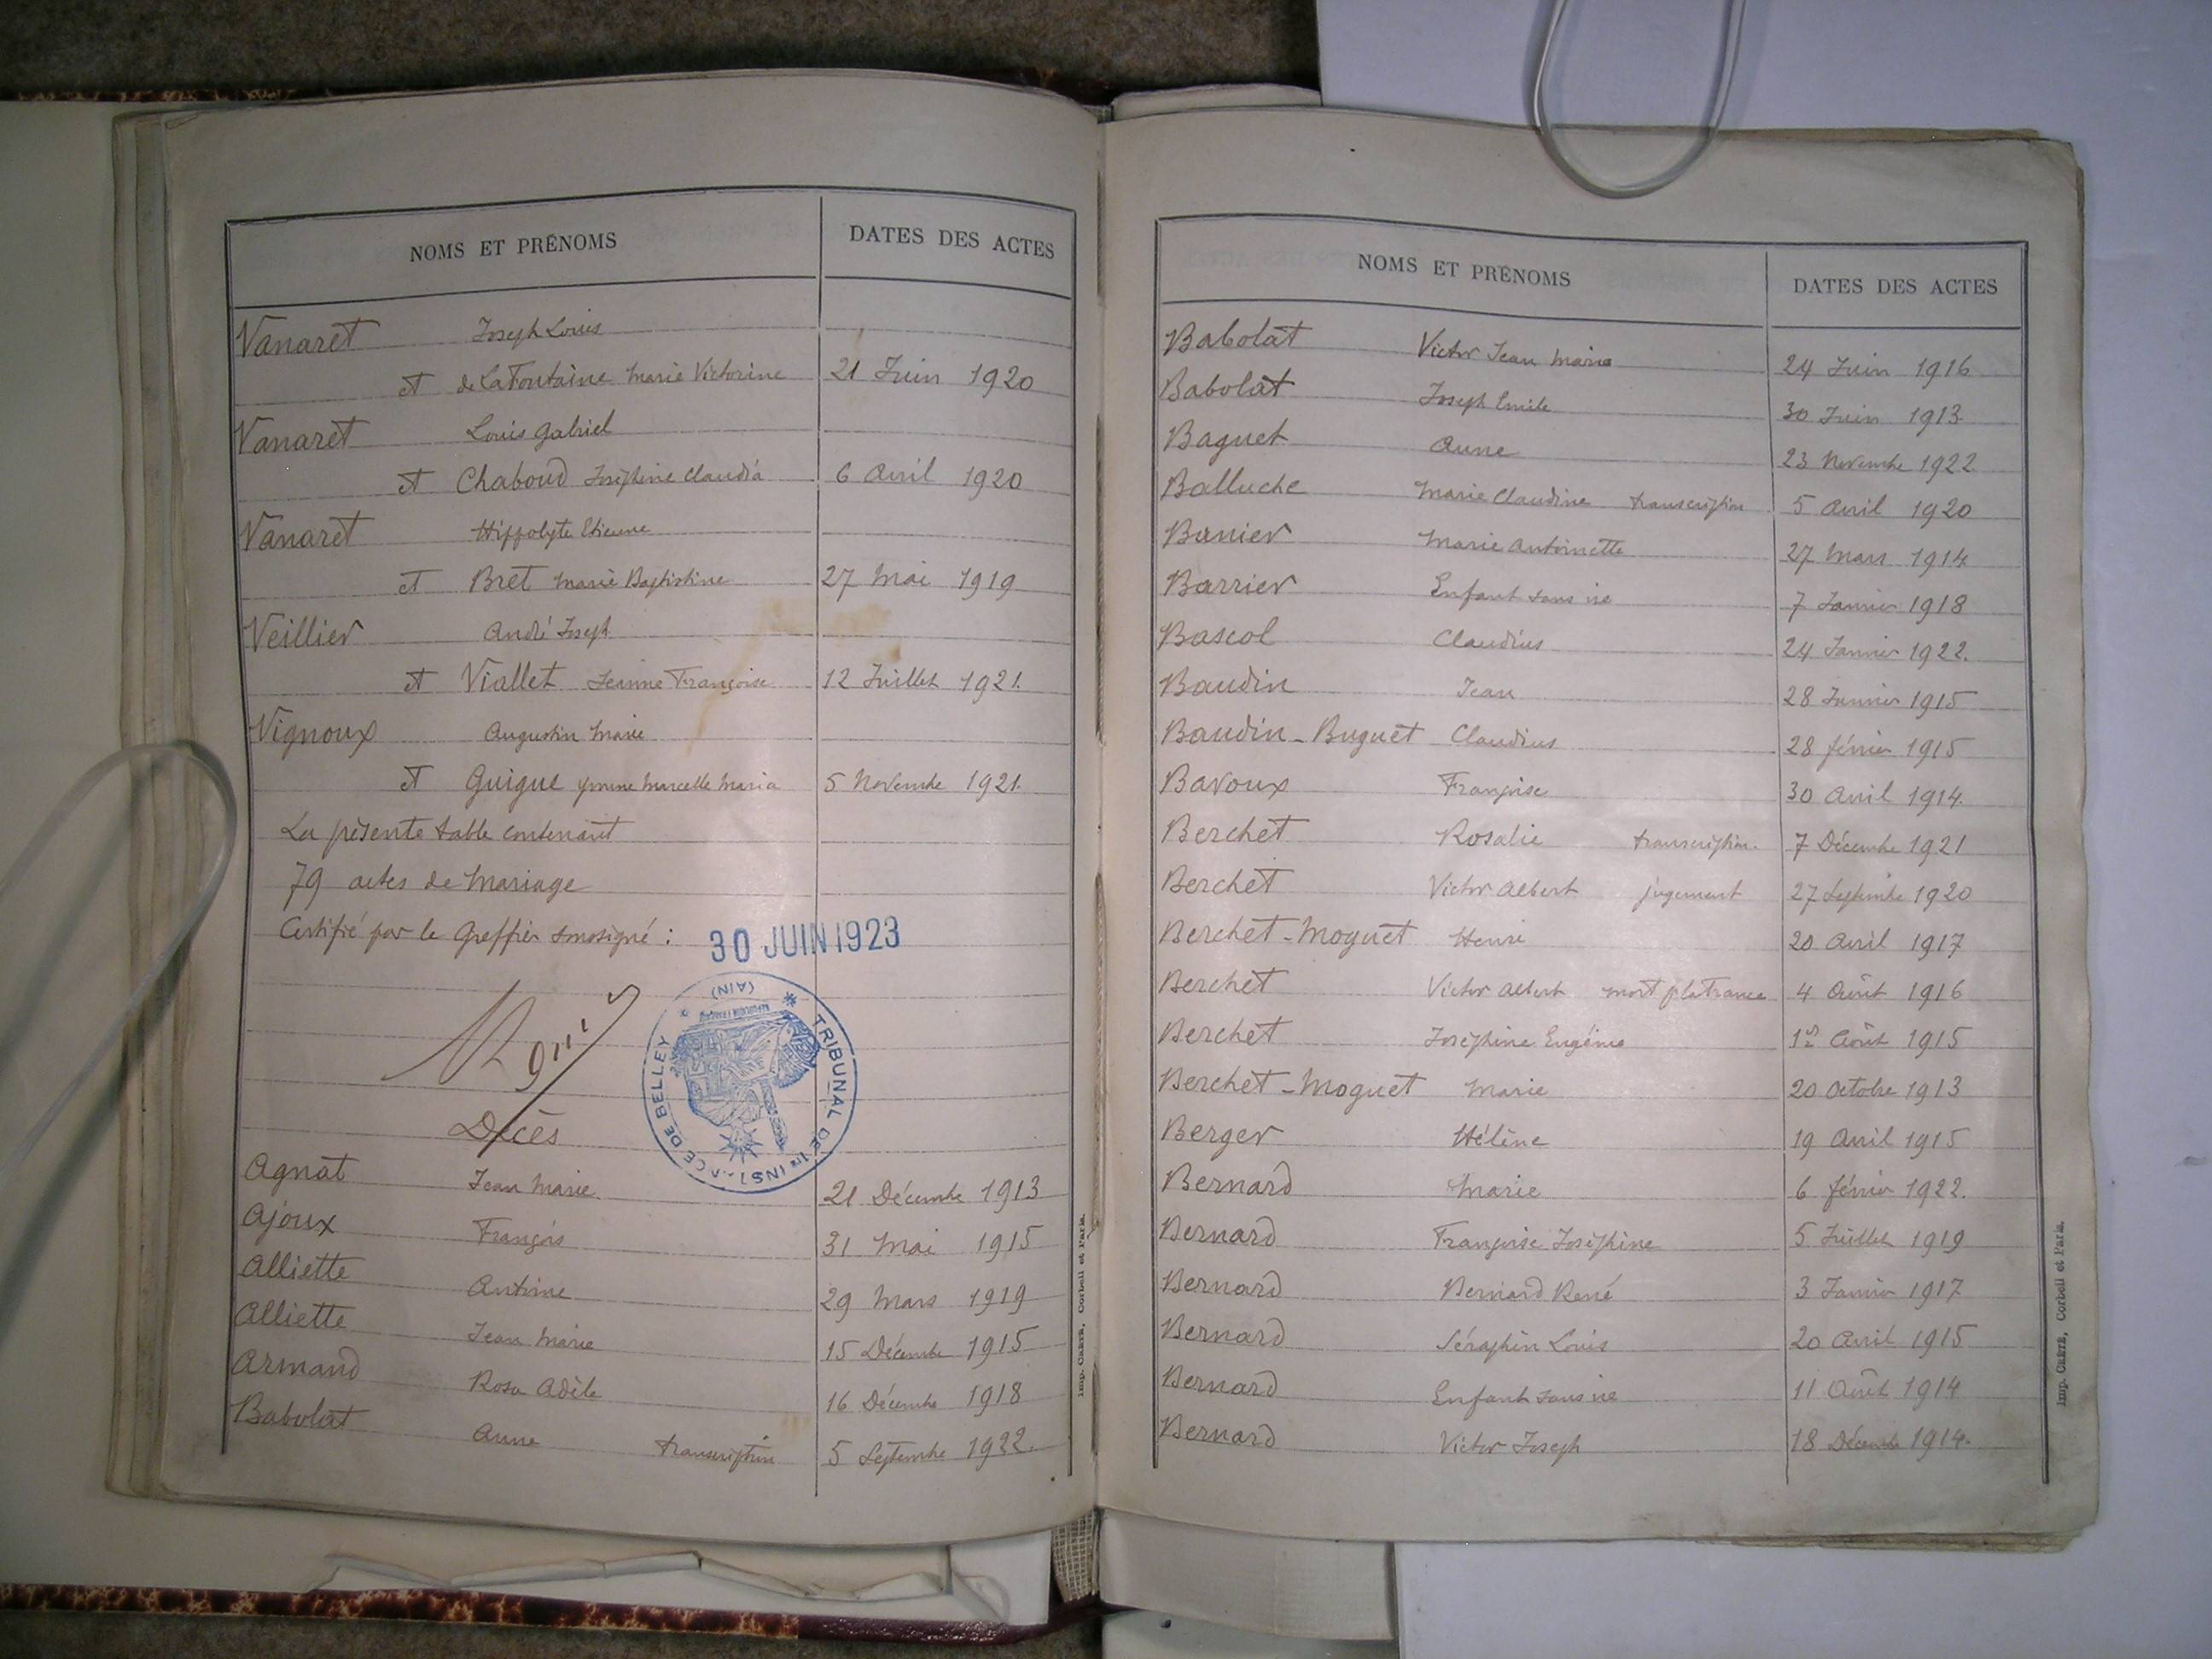 NOMS ET PRÉNOMS DATES DES ACTES
Vanaret Joseph Louis
et de La Fontaine Marie Victorine 21 Juin 1920
Vanaret Louis Gabriel
et Chaboud Joséphine Claudia 6 Avril 1920
Vanaret Hippolyte Etienne
et Bret Marie Baptistine 27 Mai 1919
Veillier André Joseph
et Viallet Jeanne Françoise 12 Juillet 1921.
Vignoux Augustin Marie
et Guigue Yvonne Marcelle Maria 5 Novembre 1921.
La présente table contenant
79 actes de Mariage
Certifié par le Greffier soussigné : 30 JUIN 1923
TRIBUNAL DE 1re INSTANCE DE BELLEY
(AIN)
Décès
Agnat Jean Marie 21 Décembre 1913
Ajoux François 31 Mai 1915
Alliette Antoine 29 Mars 1919
Alliette Jean Marie 15 Décembre 1915
Armand Rosa Adèle 16 Décembre 1918
Babolat Anne transcription 5 Septembre 1922.
Imp. CRÉTÉ, Corbeil et Paris.
NOMS ET PRÉNOMS DATES DES ACTES
Babolat Victor Jean Marie 24 Juin 1916
Babolat Joseph Emile 30 Juin 1913
Baguet Anne 23 Novembre 1922
Balluche Marie Claudine transcription 5 Avril 1920
Banier Marie Antoinette 27 Mars 1914
Barrier Enfant sans vie 7 Janvier 1918
Bascol Claudius 24 Janvier 1922.
Baudin Jean 28 Janvier 1915
Baudin-Buguet Claudius 28 février 1915
Bavoux Françoise 30 Avril 1914.
Berchet Rosalie transcription. 7 Décembre 1921
Berchet Victor Albert jugement 27 Septembre 1920
Berchet-Moguet Henri 20 Avril 1917
Berchet Victor Albert mort p la France 4 Août 1916
Berchet Joséphine Eugénie 1er Août 1915
Berchet-Moguet Marie 20 Octobre 1913
Berger Hélène 19 Avril 1915
Bernard Marie 6 février 1922.
Bernard Françoise Joséphine 5 Juillet 1919
Bernard Bernard René 3 Janvier 1917
Bernard Séraphin Louis 20 Avril 1915
Bernard Enfant sans vie 11 Août 1914
Bernard Victor Joseph 18 Décembre 1914.
Imp. CRÉTÉ, Corbeil et Paris.